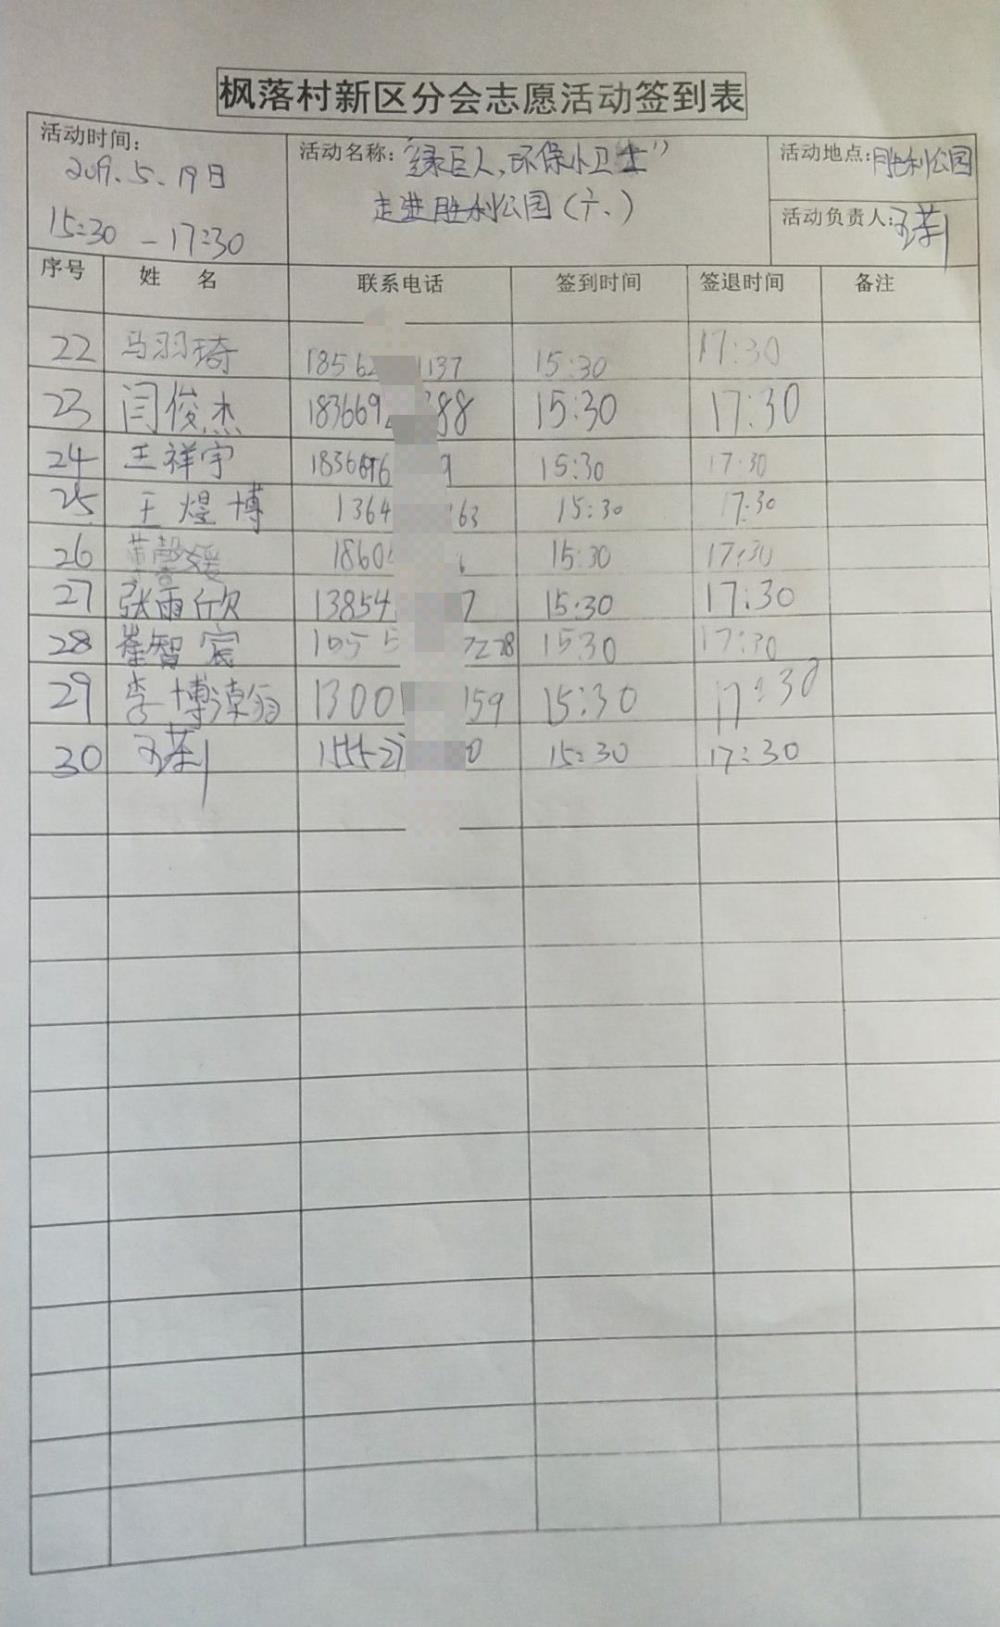 枫落村新区分会志愿活动签到表
活动时间: 2019.5.19日
15:30 — 17:30
活动名称: "绿巨人,环保小卫士"
走进胜利公园(六.)
活动地点: 胜利公园
活动负责人: 王莉
序号 姓 名 联系电话 签到时间 签退时间 备注
22 马羽琦 1856 1137 15:30 17:30
23 闫俊杰 183669 88 15:30 17:30
24 王祥宇 9 15:30 17:30
25 王煜博 1364 63 15:30 17:30
26 1860 15:30 17:30
27 张雨欣 13854 7 15:30 17:30
28 崔智宸 28 15:30 17:30
29 李博 1300 159 15:30 17:30
30 王莉 0 15:30 17:30